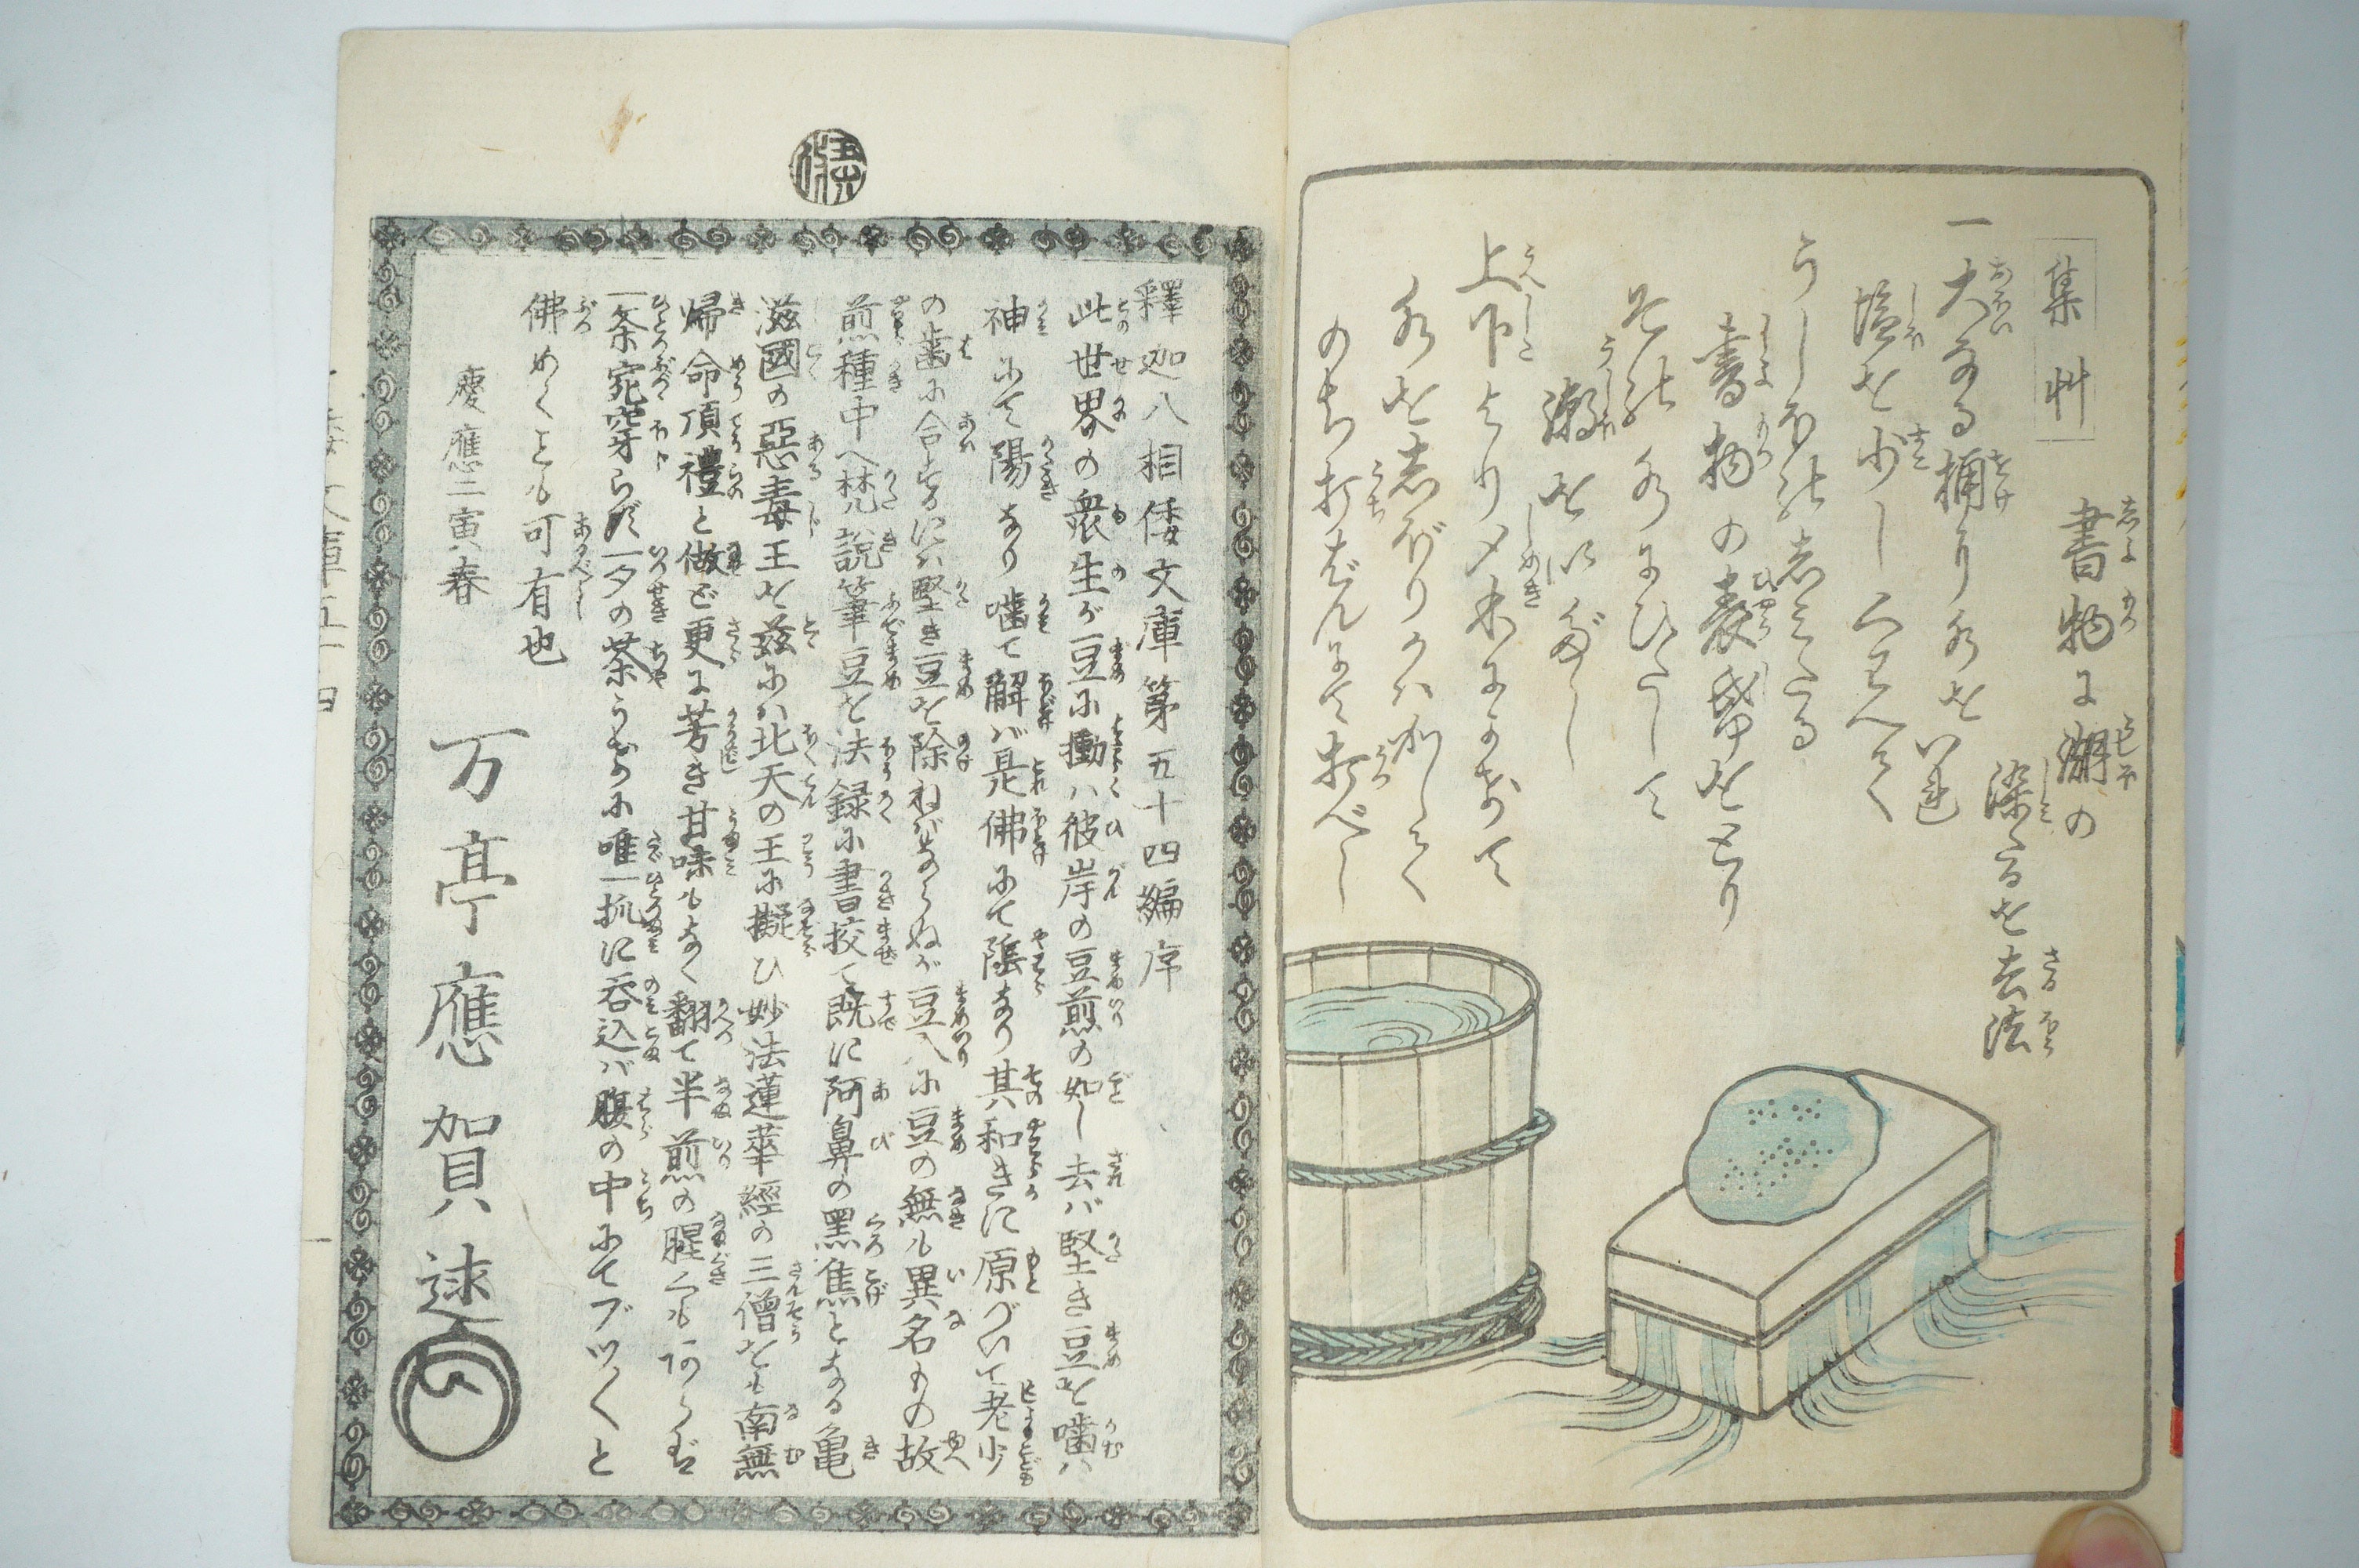 集艸
書物に潮の
染たるを去法
一大なる桶に水をいれ
塩を少しくわへて
うしほにしみたる
書物の表帋をとり
其水にひたして
潮をいだし
上下よりメ木にかけて
水をしぼりかハかして
のち打ばんにて打べし
釋迦八相倭文庫第五十四編序
此世界の衆生が豆に働ハ彼岸の豆煎の如し去バ堅き豆を噛ハ
神にて陽なり噛て解バ是佛にて陰なり其和きに原づいて老少
の歯に合するにハ堅き豆を除ねばならぬが豆入に豆の無も異名もの故
煎種中へ梵説筆豆を法録に書挍て既に阿鼻の黑焦となる亀
滋國の惡毒王を茲にハ北天の王に擬ひ妙法蓮華經の三僧をも南無
帰命頂禮と做ど更に芳き甘味もなく翻て半煎の腥くもあらず
一条窕穿らだ一夕の茶うけに唯一抓に呑込バ腹の中にてブツ〱と
佛めくとも可有也
慶應二寅春
万亭應賀述